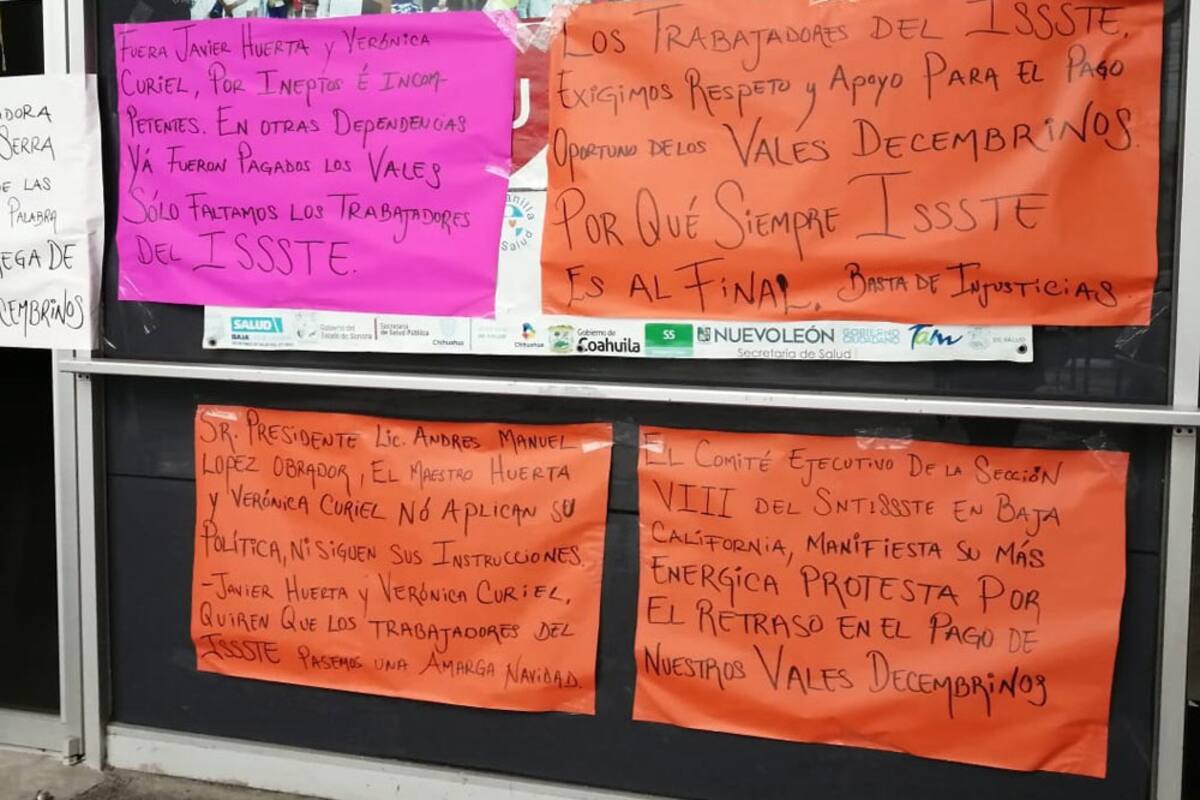 FUERA JAVIER HUERTA Y VERÓNICA
CURIEL, POR INEPTOS É INCOM-
PETENTES. EN OTRAS DEPENDENCIAS
YÁ FUERON PAGADOS LOS VALES
SÓLO FALTAMOS LOS TRABAJADORES
DEL ISSSTE.
LOS TRABAJADORES DEL ISSSTE,
EXIGIMOS RESPETO Y APOYO PARA EL PAGO
OPORTUNO DE LOS VALES DECEMBRINOS.
POR QUÉ SIEMPRE ISSSTE
ES AL FINAL. BASTA DE INJUSTICIAS.
ADORA
SERRA
E LAS
PALABRA
EGA DE
CEMBRINOS
U
Salud
SALUD
BAJA
Gobierno del
Estado de Sonora
Secretaría
de Salud Pública
Chihuahua
Chihuahua
Gobierno de
Coahuila
SS
NUEVO LEÓN
Secretaría de Salud
GOBIERNO
CIUDADANO
Tam
DE SALUD
SR. PRESIDENTE LIC. ANDRES MANUEL
LOPEZ OBRADOR, EL MAESTRO HUERTA
Y VERÓNICA CURIEL NO APLICAN SU
POLÍTICA, NI SIGUEN SUS INSTRUCCIONES.
-JAVIER HUERTA Y VERÓNICA CURIEL,
QUIREN QUE LOS TRABAJADORES DEL
ISSSTE PASEMOS UNA AMARGA NAVIDAD.
EL COMITÉ EJECUTIVO DE LA SECCIÓN
VIII DEL SNTISSSTE EN BAJA
CALIFORNIA, MANIFIESTA SU MÁS
ENERGICA PROTESTA POR
EL RETRASO EN EL PAGO DE
NUESTROS VALES DECEMBRINOS